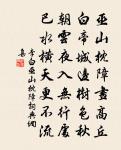 巫山枕障畫高丘
白帝城邊樹色秋
朝雲夜入無行處
巴水橫天更不流
李白巫山枕障詞典網
集